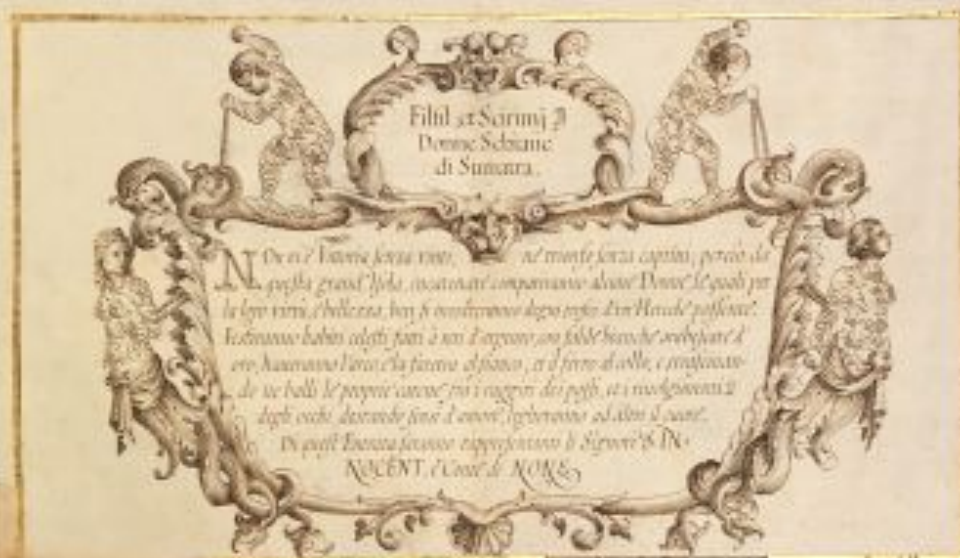 Filtil et Scirmij
Donne Schiaue
di Sumatra.
NOn vi è Vittoria senza vinto, né trionfo senza captiui, perciò da
questa grand' Isola, incatenate compariranno alcune Donne, le quali per
la loro virtù, e bellezza, ben si mostreranno degno
Vestiranno habiti celesti fatti à d'argento, con falde bianche
oro, haueranno l'arco, e la faretra al fianco, et il ferro al collo, e
do ne balli le proprie catene, trà i raggiri dei passi, et i riuolgimenti
degli occhi, d'amore, legheranno ad altri il cuore.
Di quest' Entrata saranno rappresentanti li Signori di IN-
NOCENT, e Conte di NONE